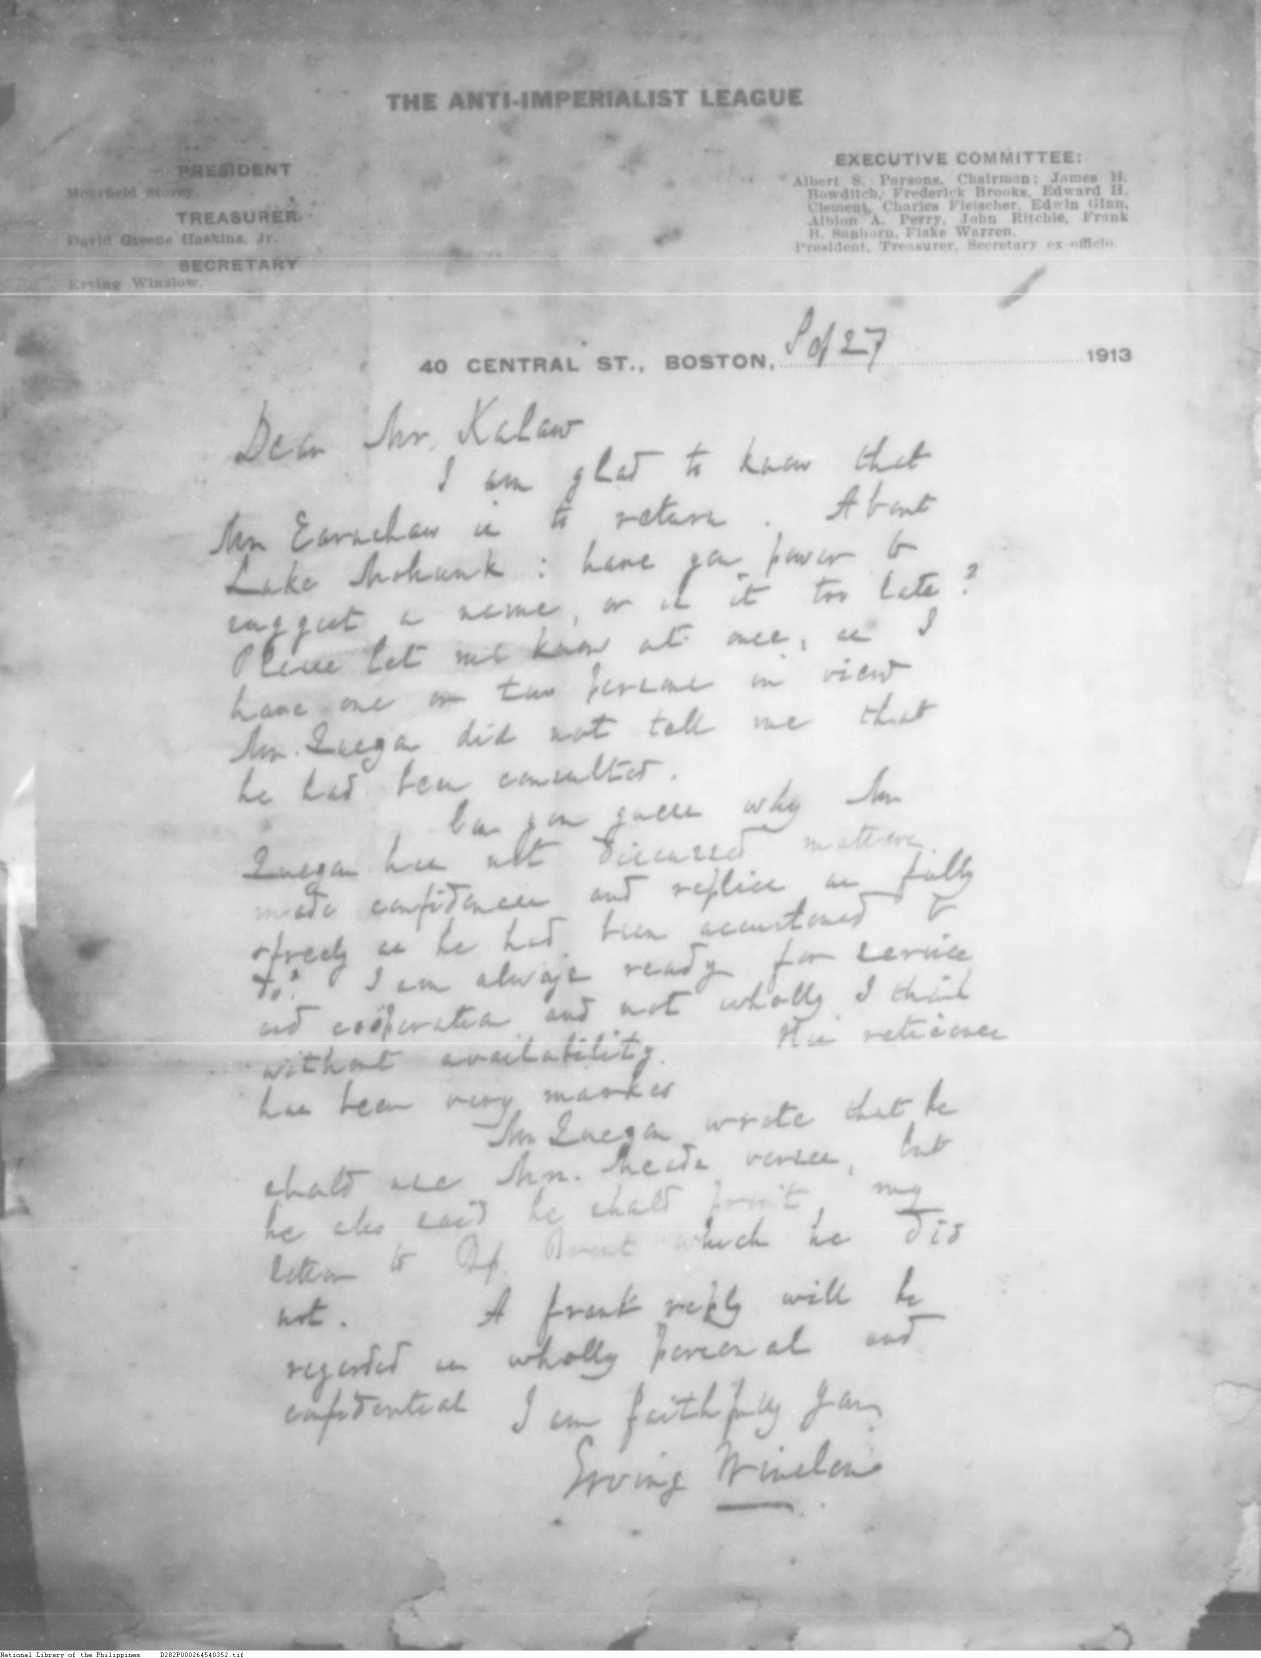 THE ANTI-IMPERIALIST LEAGUE
PRESIDENT
Moorfield Storey.
TREASURER
David Greene Haskins, Jr.
SECRETARY
Erving Winslow.
EXECUTIVE COMMITTEE:
Albert S. Parsons, Chairman; James H.
Bowditch, Frederick Brooks, Edward H.
Clement, Charles Fleischer, Edwin Ginn,
Albion A. Perry, John Ritchie, Frank
B. Sanborn, Fiske Warren.
President, Treasurer, Secretary ex-officio.
40 CENTRAL ST., BOSTON, 27 1913
Dear Mr. Kalaw
I am glad to know that
Mr Earnshaw is to return. About
Lake Mohunk : have you power to
suggest a name, or is it too late?
Please let me know at once, as I
have one or two persons in view
Mr. Quezon did not tell me that
he had been consulted.
Can you guess why Mr
Quezon has not discussed matters
made confidences and replies as fully
& freely as he had been accustomed to
do? I am always ready for service
and coöperation and not wholly I think
without availability. His reticence
has been very marked
Mr Quezon wrote that he
shald use Mrs. verses, but
he also said he shald print my
letter to Bp. Brent which he did
not. A frank reply will be
regarded as wholly personal and
confidential I am faithfully yours
Erving Winslow
National Library of the Philippines D282P000264540352.tif